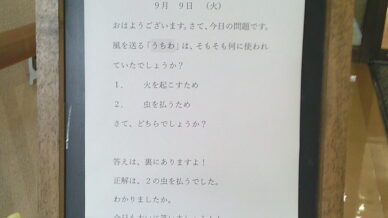 9月 9日 （火）
おはようございます。さて、今日の問題です。
風を送る「うちわ」は、そもそも何に使われ
ていたでしょうか？
１． 火を起こすため
２． 虫を払うため
さて、どちらでしょうか？
答えは、裏にありますよ！
正解は、２の虫を払うでした。
わかりましたか。